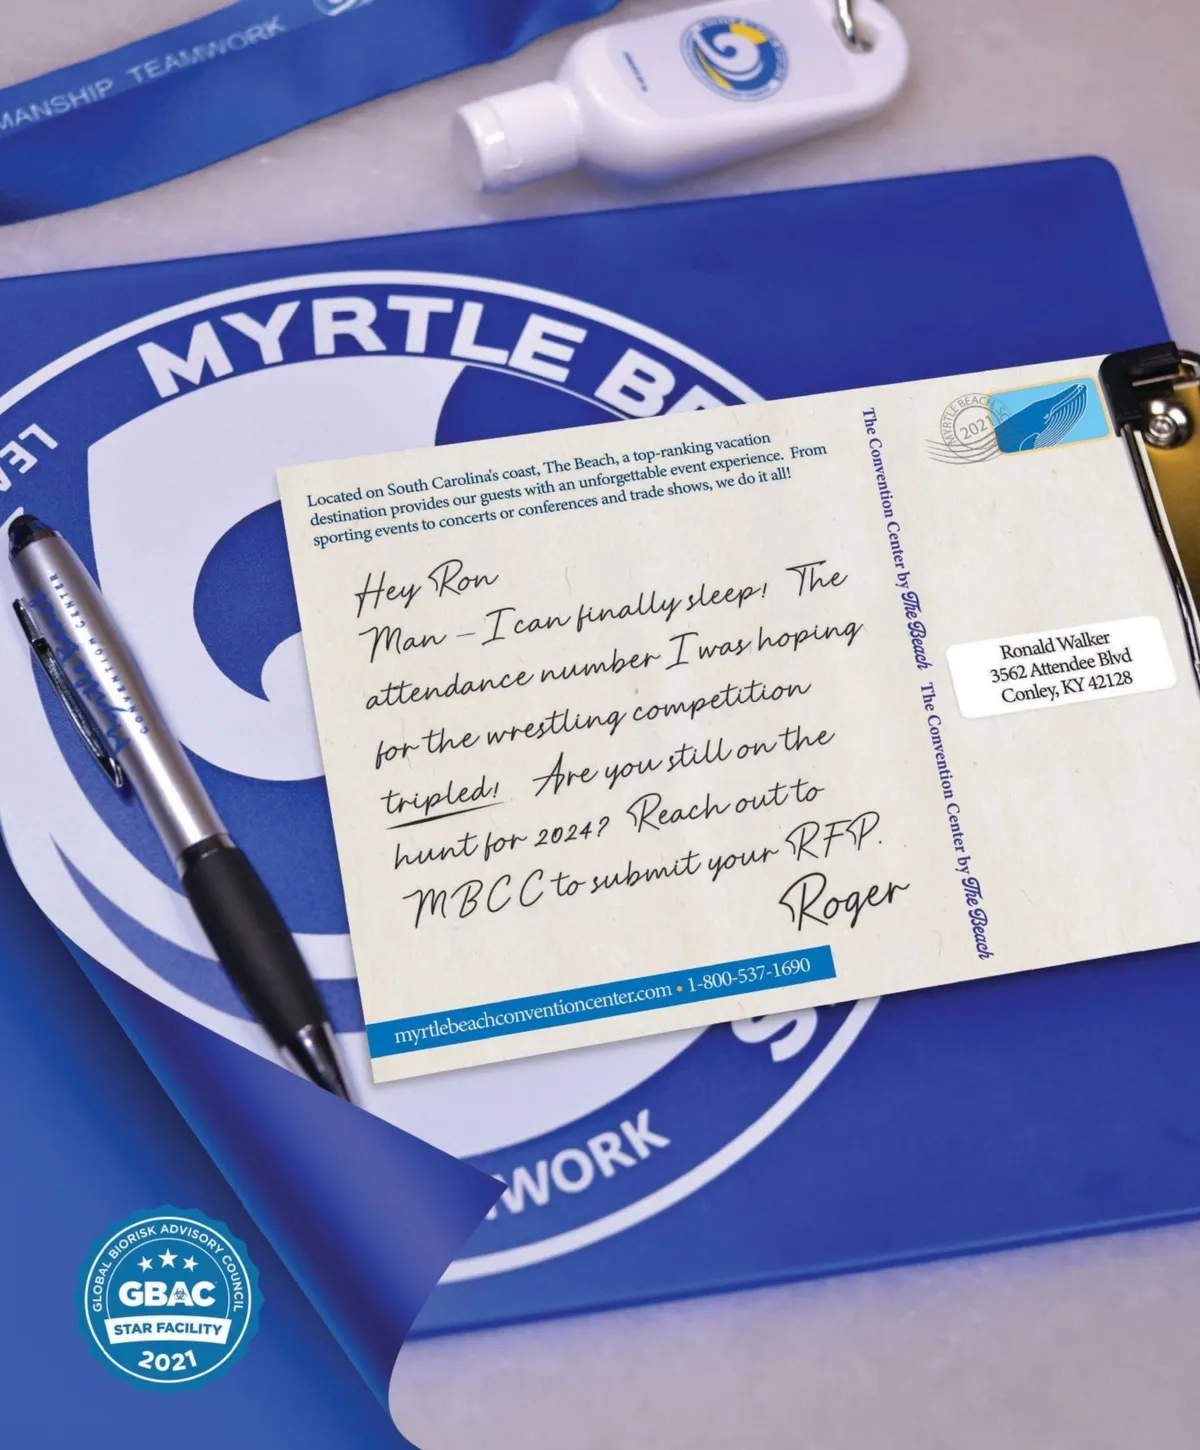 MANSHIP TEAMWORK
MYRTLE BE
Located on South Carolina's coast, The Beach, a top-ranking vacation
destination provides our guests with an unforgettable event experience. From
sporting events to concerts or conferences and trade shows, we do it all!
Hey Ron
Man – I can finally sleep! The
attendance number I was hoping
for the wrestling competition
tripled! Are you still on the
hunt for 2024? Reach out to
MBCC to submit your RFP.
Roger
myrtlebeachconventioncenter.com • 1-800-537-1690
The Convention Center by The Beach The Convention Center by The Beach
MYRTLE BEACH, SC
2021
Ronald Walker
3562 Attendee Blvd
Conley, KY 42128
Myrtle Beach
CONVENTION CENTER
WORK
GLOBAL BIORISK ADVISORY COUNCIL
GBAC
STAR FACILITY
2021